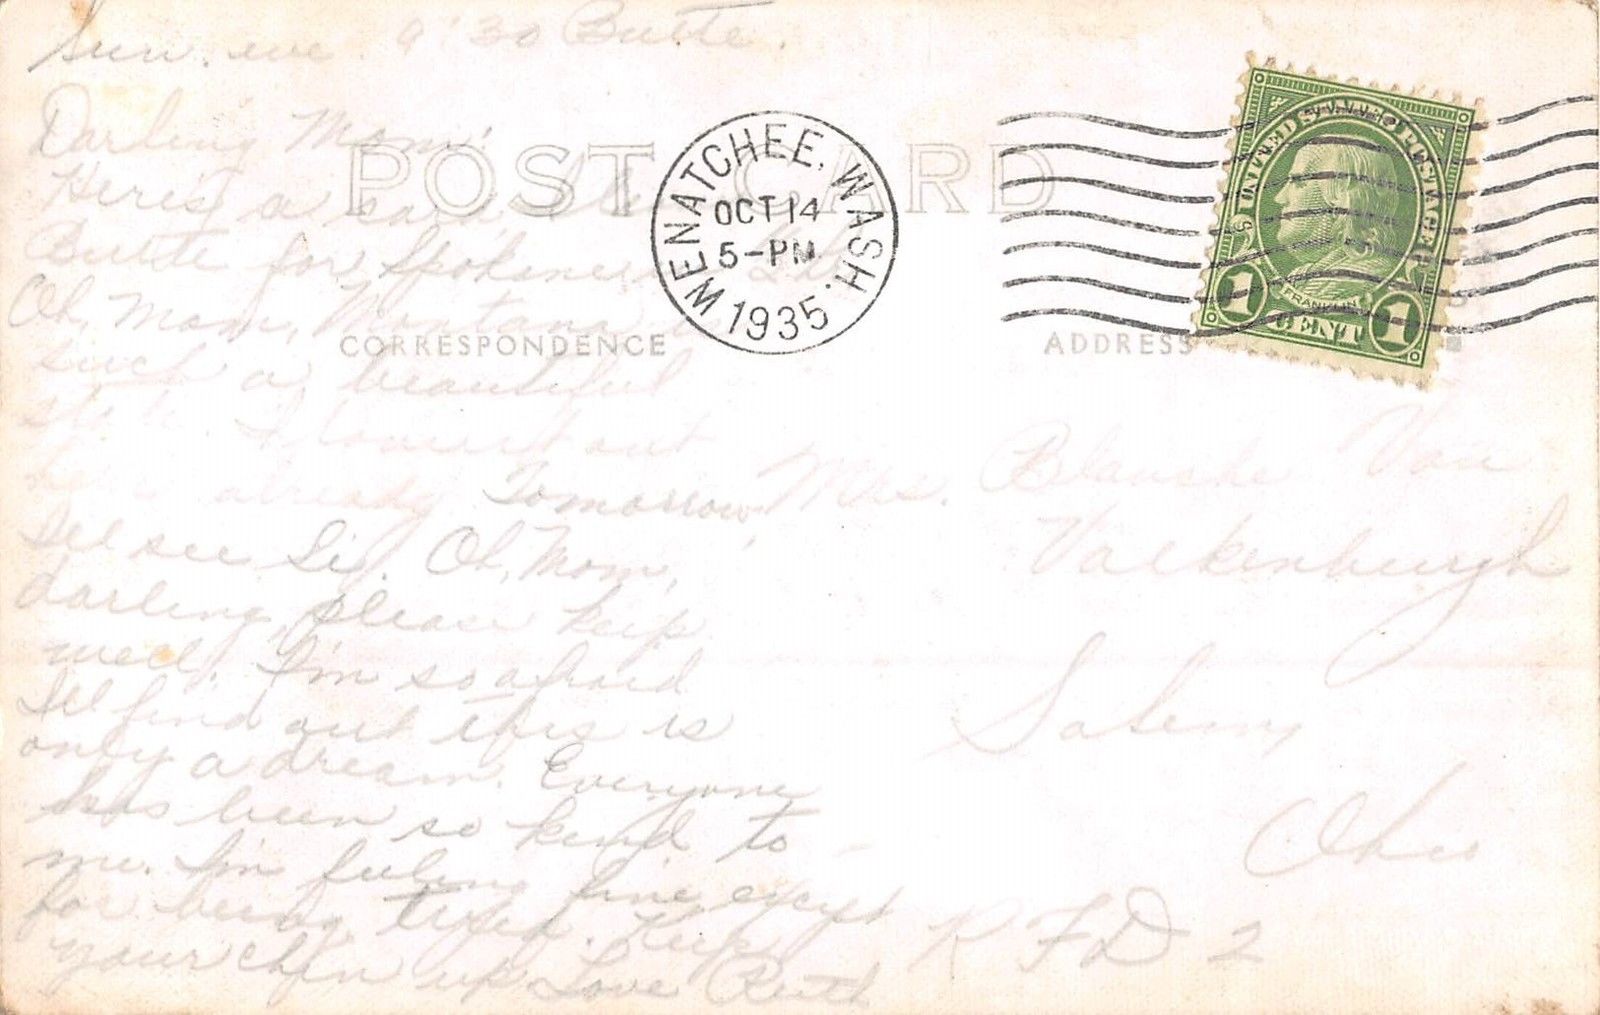 Sun. eve. 9:30 Butte.
Darling Mom:
Here's a card
Butte for Spokane
Oh, Mom, Montana
such a beautiful
state. I out
here already Tomorrow,
I'll see Si. Oh, Mom,
darling, please keep
well. I'm so afraid
I'll find out this is
only a dream. Everyone
has been so kind to
me. I'm feeling fine except
for being tired. Keep
your chin up Love Ruth
POST CARD
CORRESPONDENCE
ADDRESS
WENATCHEE, WASH.
OCT 14
5-PM
1935
UNITED STATES POSTAGE
FRANKLIN
1 CENT 1
Mrs. Blanche Van
Valkenburgh
Salem,
Ohio
R F D 2